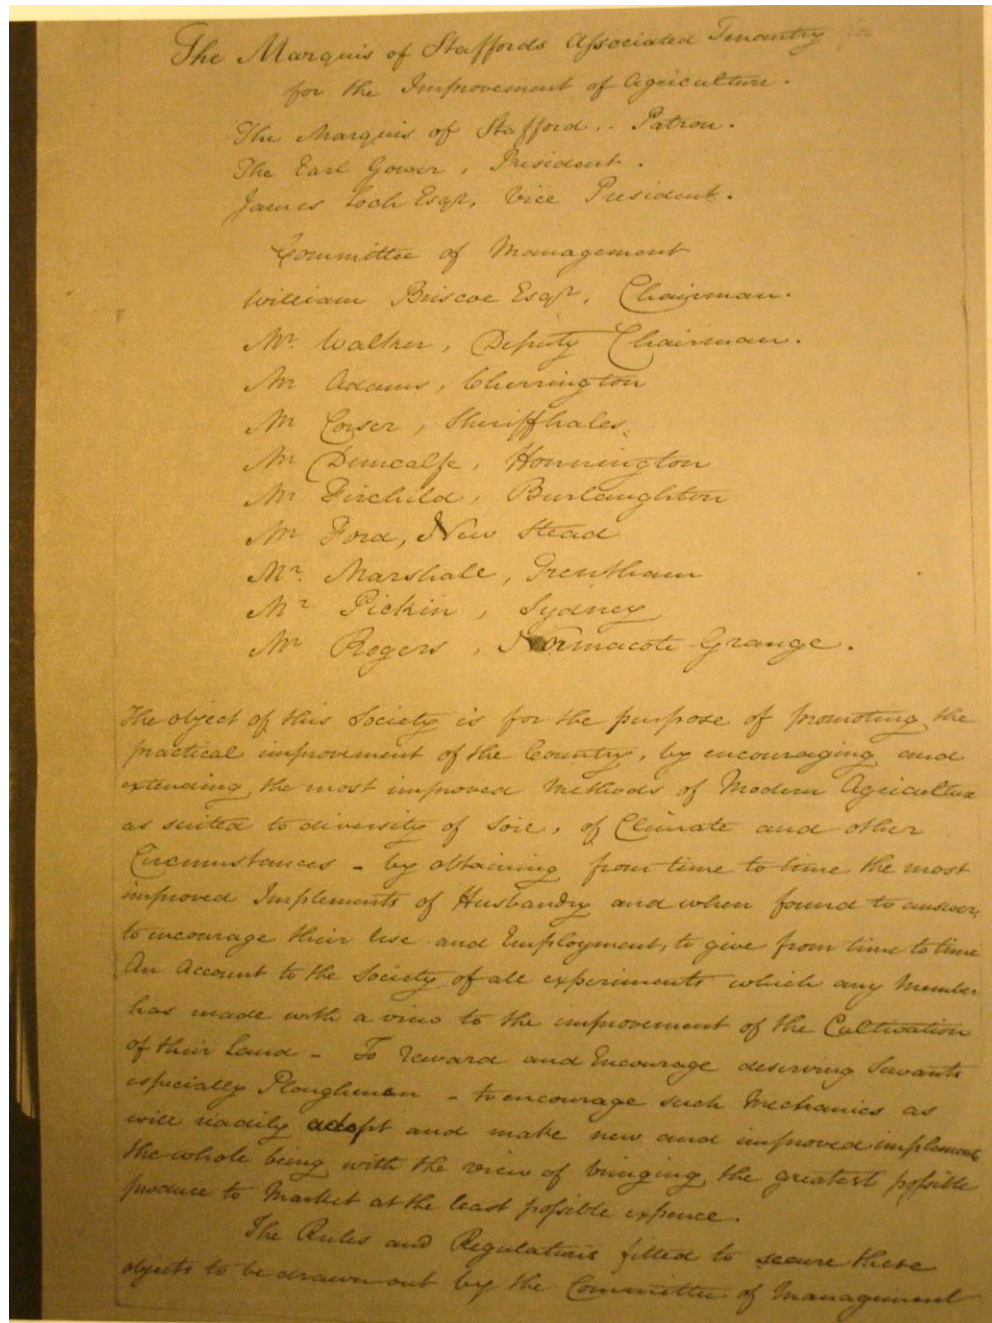 The Marquis of Staffords Associated Tenantry for
for the Improvement of Agriculture.
The Marquis of Stafford .. Patron.
The Earl Gower, President.
James Loch Esqr, Vice President.
Committee of Management
William Briscoe Esqr, Chairman.
Mr. Walker, Deputy Chairman.
Mr Adams, Cherrington
Mr Corser, Sheriffhales.
Mr Duncalfe, Honnington
Mr Firchild, Burlaughton
Mr Ford, New Stead
Mr. Marshall, Trentham
Mr Pickin, Sydney
Mr Rogers, Normacote Grange.
The object of this Society is for the purpose of promoting the
practical improvement of the Country, by encouraging and
extending the most improved Methods of Modern Agriculture
as suited to diversity of Soil, of Climate and other
Circumstances - by obtaining from time to time the most
improved Implements of Husbandry and when found to answer,
to encourage their Use and Employment, to give from time to time
An Account to the Society of all experiments which any Member
has made with a view to the improvement of the Cultivation
of their Land - To Reward and Encourage deserving Servants
especially Ploughmen - to encourage such Mechanics as
will readily adopt and make new and improved implements
the whole being with the view of bringing the greatest possible
produce to Market at the least possible expence.
The Rules and Regulations fitted to secure these
objects to be drawn out by the Committee of Management